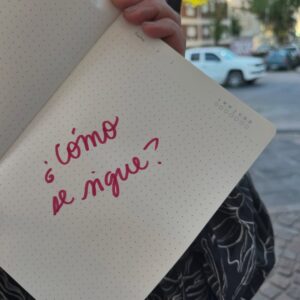 ¿Cómo
se sigue?